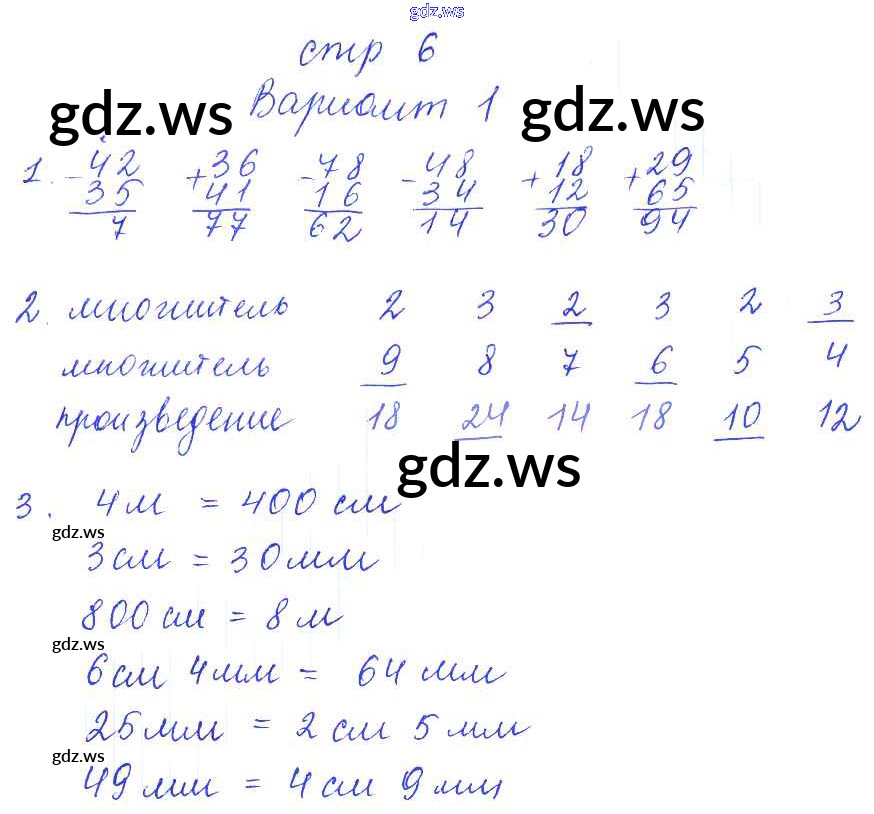 gdz.ws
стр 6
Вариант 1
gdz.ws gdz.ws
1. -42 +36 -78 -48 +18 +29
35 41 16 34 12 65
7 77 62 14 30 94
2. множитель 2 3 2 3 2 3
множитель 9 8 7 6 5 4
произведение 18 24 14 18 10 12
gdz.ws
3. 4м = 400 см
gdz.ws
3см = 30мм
800см = 8м
gdz.ws
6см 4мм = 64мм
25мм = 2см 5мм
gdz.ws
49мм = 4см 9мм